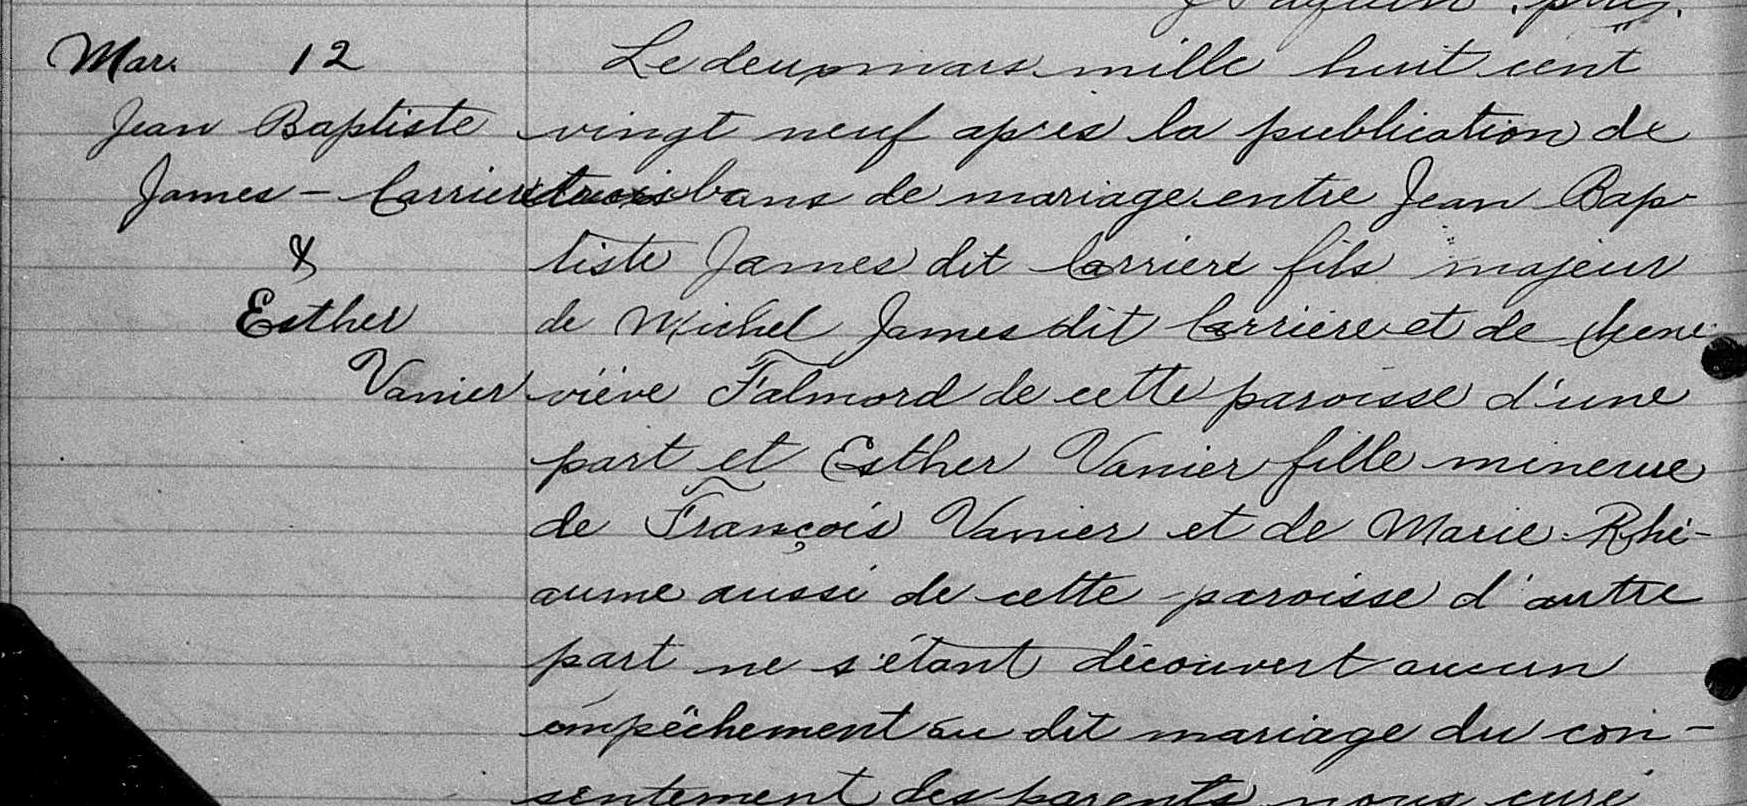 Paquin. ptre.
Mar. 12
Jean Baptiste
James - Carriere
&
Esther
Vanier
Le deux mars mille huit cent
vingt neuf après la publication de
trois bans de mariage entre Jean Bap-
tiste James dit Carriere fils majeur
de Michel James dit Carriere et de Gene
viève Falmord de cette paroisse d'une
part et Esther Vanier fille mineure
de François Vanier et de Marie Rhé-
aume aussi de cette paroisse d'autre
part ne s'étant découvert aucun
empêchement au dit mariage du con-
sentement des parents nous curé